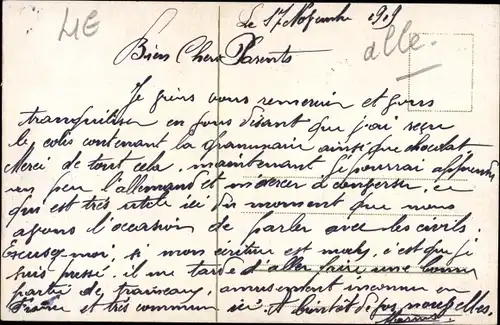 ME
alle.
Le 17 Novembre 191
Bien Chers Parents
Je viens vous remercier et vous
tranquiliser en vous disant que j'ai reçu
le colis contenant la Grammaire ainsi que chocolat
Merci de tout cela, maintenant je pourrai apprendre
un peu l'allemand et m'exercer a converser, ce
qui est très utile ici du moment que nous
avons l'occasion de parler avec les civils.
Excusez-moi, si mon écriture est moche, c'est que je
suis pressé. il me tarde d'aller faire une bonne
partie de traineau, amusement inconnu en
France et très commun ici. A bientôt de vos nouvelles